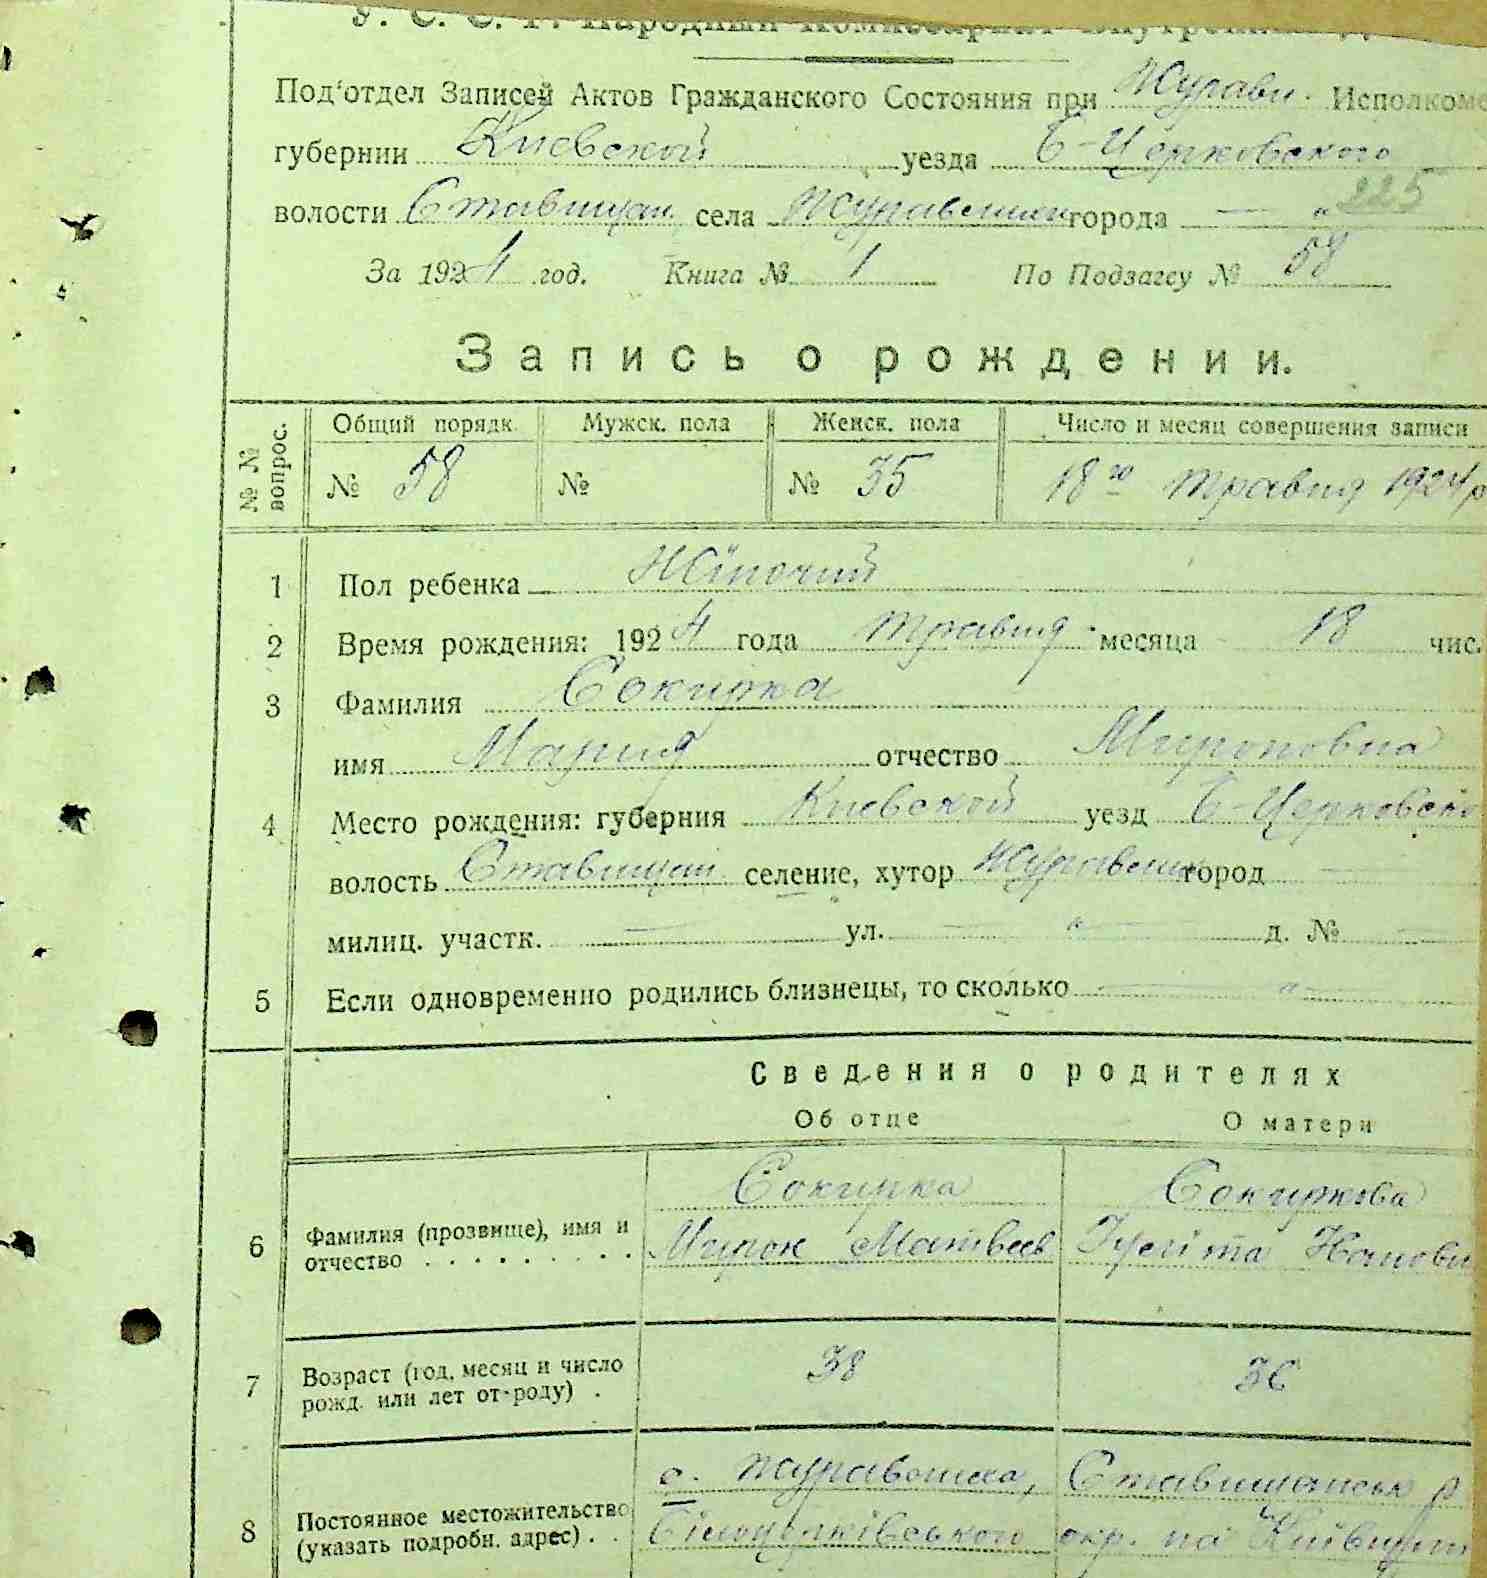 У. С. С. Р. Народный Комиссариат Внутренних Д
Под'отдел Записей Актов Гражданского Состояния при Журавл. Исполкоме
губернии Киевской уезда Б-Церковского
225
волости Ставищан. села Журавлиха города — „
За 1924 год. Книга № 1 По Подзагсу № 58
Запись о рождении.
№ № вопрос. Общий порядк. Мужск. пола Женск. пола Число и месяц совершения записи
№ 58 № № 35 18го травня 1924 р
1 Пол ребенка Жіночий
2 Время рождения: 1924 года травня месяца 18 чис.
3 Фамилия Сокирка
имя Мария отчество Мироновна
4 Место рождения: губерния Киевской уезд Б-Церковско
волость Ставищан селение, хутор город —
милиц. участк. — ул. — „ — д. № —
5 Если одновременно родились близнецы, то сколько — „ —
Сведения о родителях
Об отце О матери
Сокирка Сокиркова
6 Фамилия (прозвище), имя и
отчество . . . . . . . . Мирон Матвеев
7 Возраст (год, месяц и число
рожд. или лет от-роду) . 38 36
с. Журавлиха, Ставищанськ р
8 Постоянное местожительство
(указать подробн. адрес) . . Білоцерківського окр. на Київщин